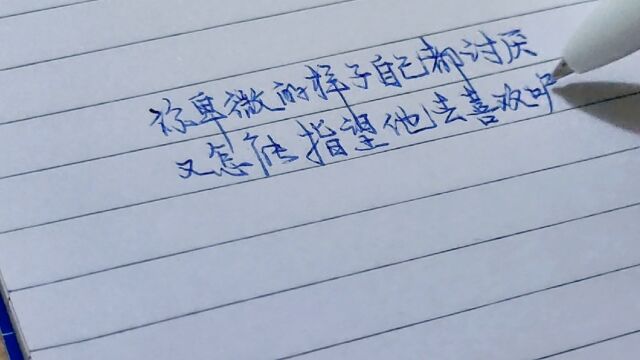 你卑微的样子自己都讨厌
又怎能指望他去喜欢呢